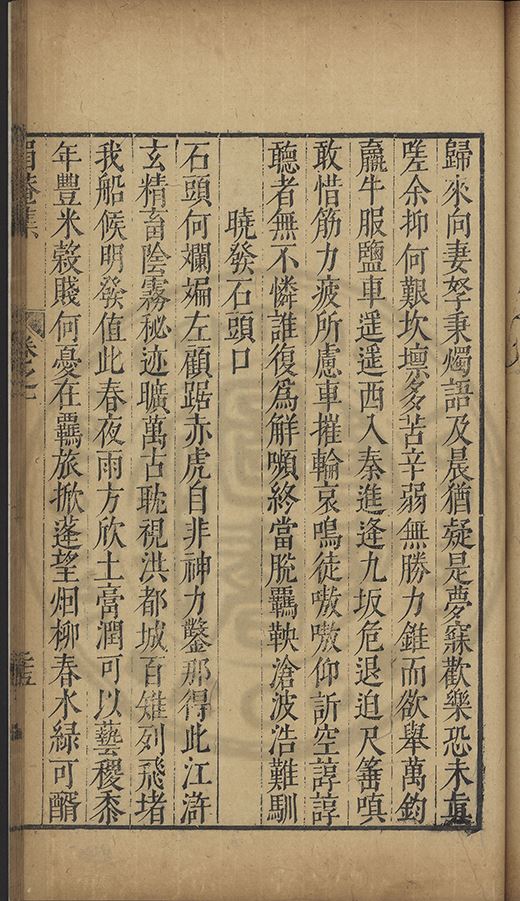 歸來向妻孥秉燭語及晨猶疑是夢寐歡樂恐未眞
嗟余抑何艱坎壈多苦辛弱無勝力錐而欲舉萬鈞
羸牛服鹽車遥遥西入秦進逢九坂危退迫尺箠嗔
敢惜筋力疲所慮車摧輪哀鳴徒嗷嗷仰訴空諄諄
聽者無不憐誰復爲解嚬終當脫羈鞅滄波浩難馴
曉發石頭口
石頭何斕斒左顧踞赤虎自非神力鑿那得此江滸
玄精畜陰霧秘迹曠萬古耽視洪都城百雉列飛堵
我船候明發值此春夜雨方欣土膏潤可以藝稷黍
年豐米穀賤何憂在羈旅掀蓬望烟柳春水緑可醑
卷之一